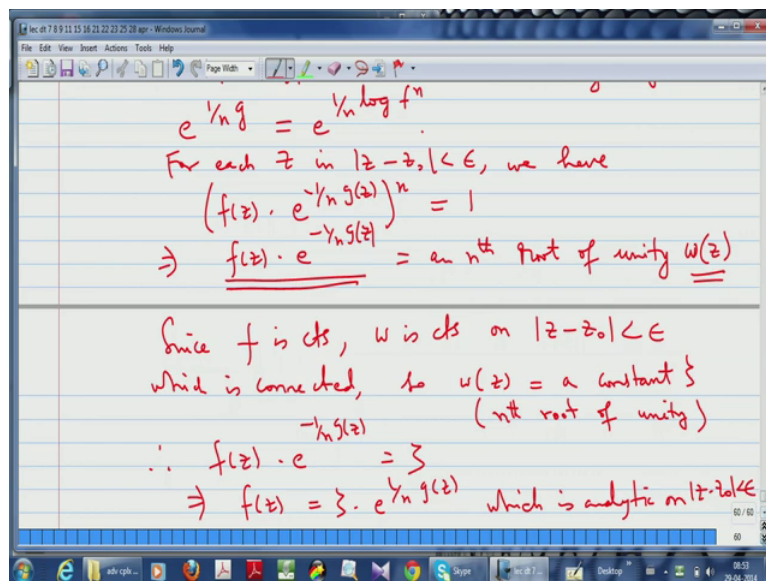 lec dt 7 8 9 11 15 16 21 22 23 25 28 apr - Windows Journal
File Edit View Insert Actions Tools Help
Page Width
e^{1/n g} = e^{1/n log f^n} .
For each z in |z-z₀| < ε, we have
(f(z) · e^{-1/n g(z)})^n = 1
⇒ f(z) · e^{-1/n g(z)} = an nth root of unity ω(z)
Since f is cts, ω is cts on |z-z₀| < ε
which is connected, so ω(z) = a constant ξ
(nth root of unity)
∴ f(z) · e^{-1/n g(z)} = ξ
⇒ f(z) = ξ · e^{1/n g(z)} which is analytic on |z-z₀|<ε
60 / 60
60
adv cplx ... Skype lec dt 7 ... Desktop » 08:53
29-04-2014